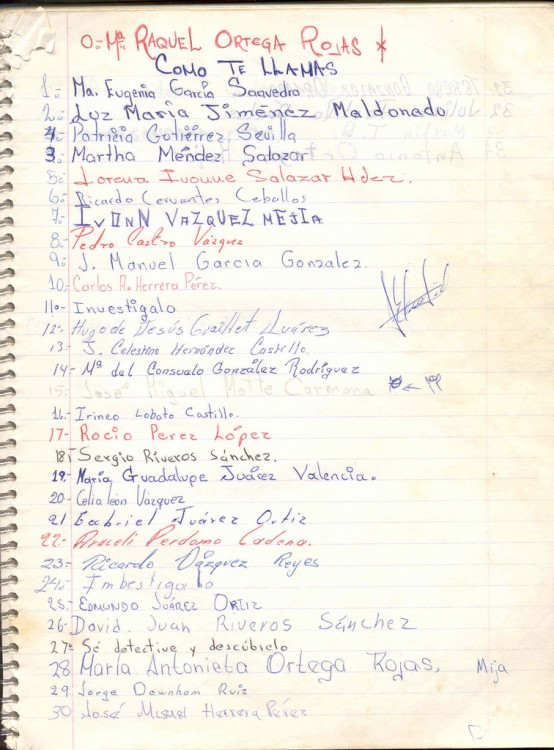 0.- Mª RAQUEL ORTEGA ROJAS
COMO TE LLAMAS
1.- Ma. Eugenia García Saavedra
2.- Luz María Jiménez Maldonado
4.- Patricia Gutiérrez Sevilla
3.- Martha Méndez Salazar
5.- Lorena Ivonne Salazar Hdez.
6.- Ricardo Cervantes Ceballos
7.- IVONN VAZQUEZ MEJIA
8.- Pedro Castro Vázquez
9.- J. Manuel Garcia Gonzalez.
10.- Carlos A. Herrera Pérez.
11.- Investigalo
12.- Hugo de Jesús Graillet Juárez
13.- J. Celestino Hernández Castillo.
14.- Mª del Consualo González Rodríguez
15.- José Miguel Motte Carmona
16.- Irineo Lobato Castillo.
17.- Rocio Perez López
18.- Sergio Riveros Sánchez.
19.- María Guadalupe Juárez Valencia.
20.- Celia león Vázquez
21 Gabriel Juárez Ortiz
22.- Araceli Perdomo Cadena.
23.- Ricardo Vázquez Reyes
24.- Imbestigalo
25.- EDMUNDO JUÁREZ ORTIZ
26.- David. Juan Riveros Sánchez
27.- Sé detective y descúbrelo
28 María Antonieta Ortega Rojas. Mija
29 Jorge Downham Ruiz
30 José Miguel Herrera Pérez